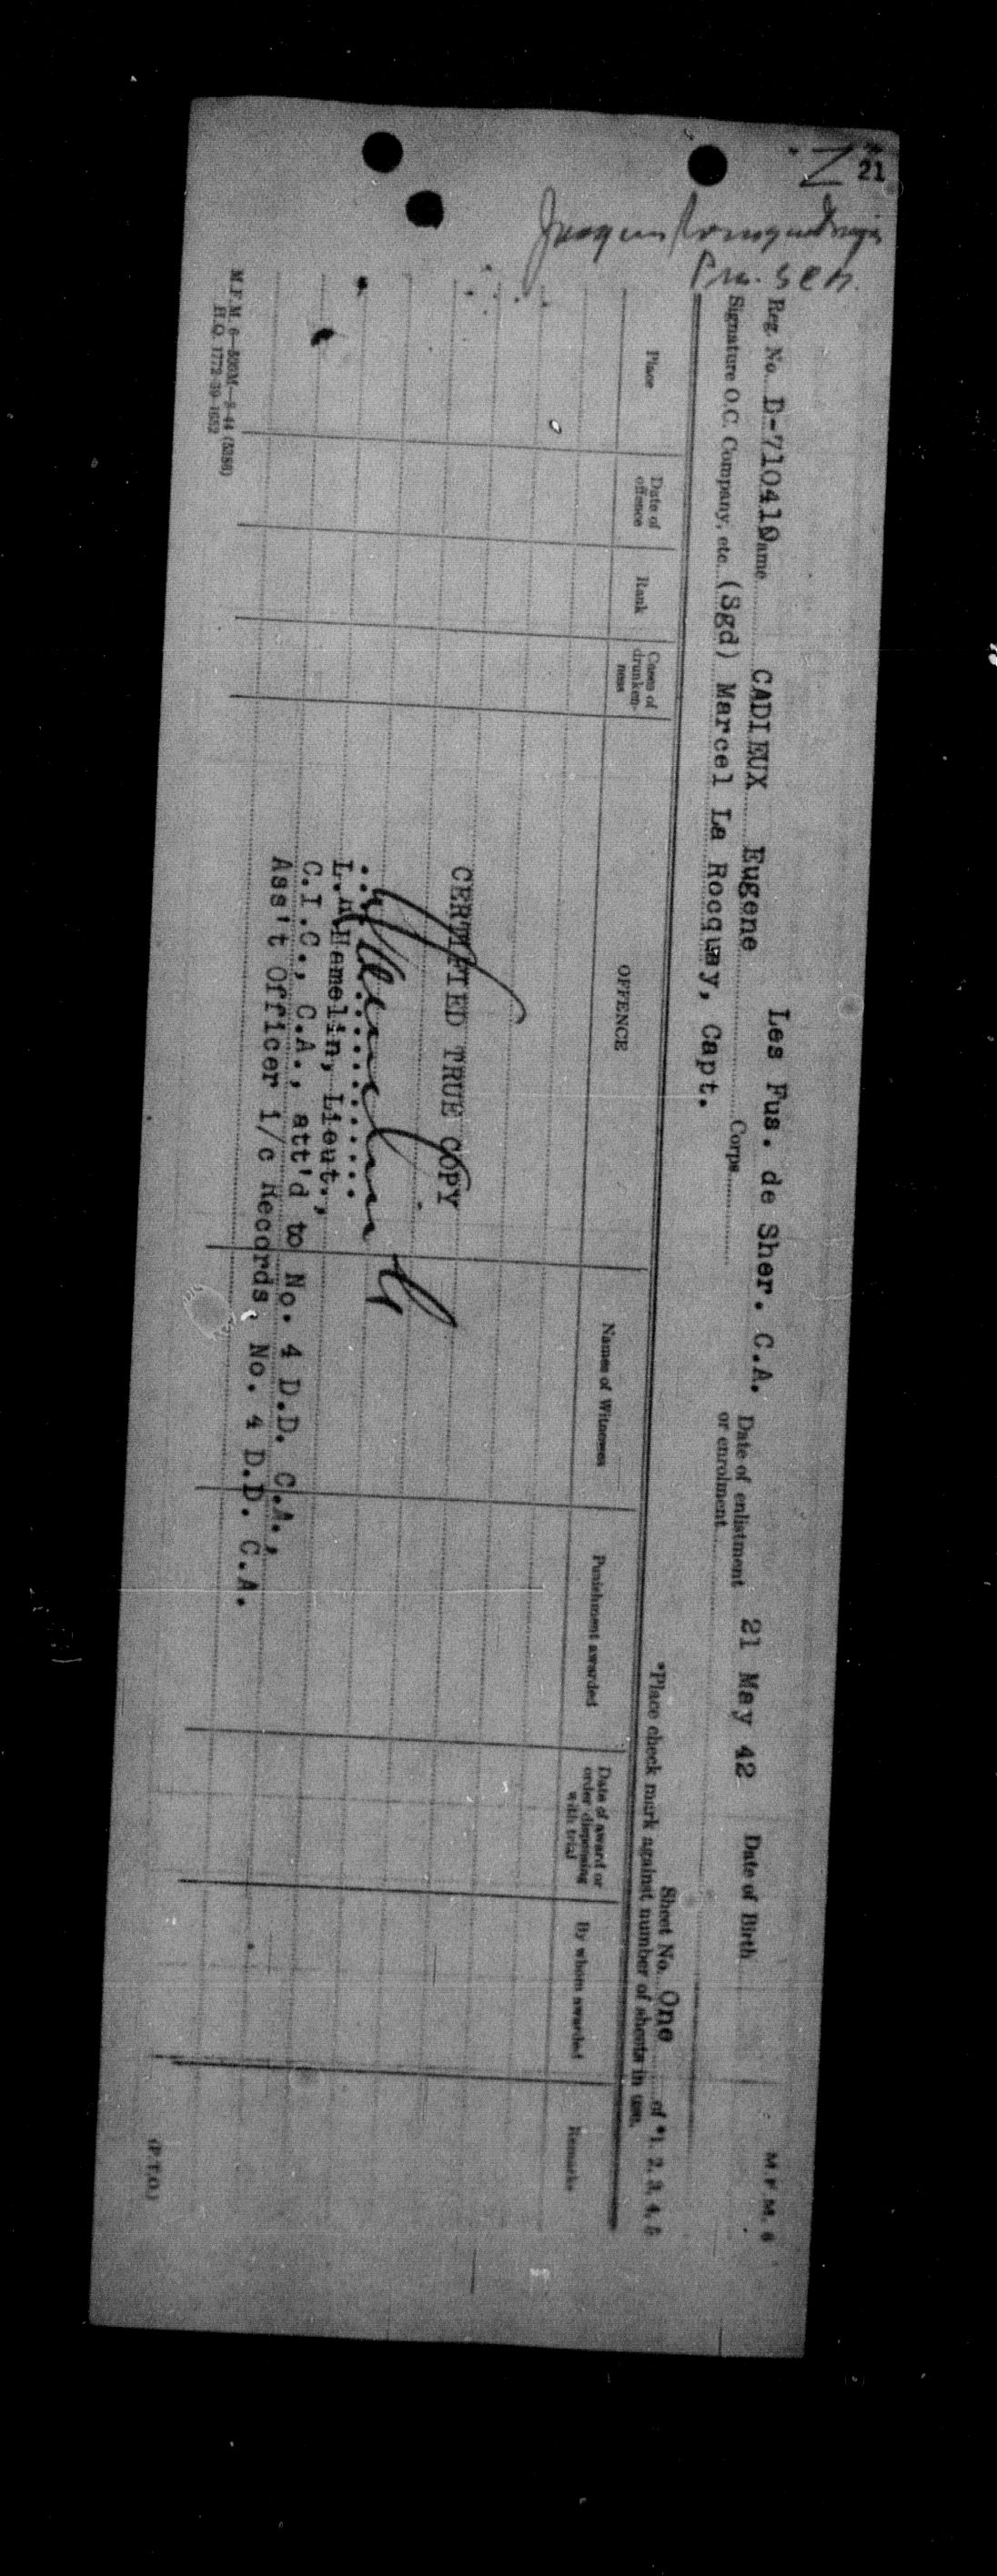 21
M.F.M. 6
Reg. No. D-710410 Name CADIEUX Eugene Corps Les Fus. de Sher. C.A. Date of enlistment or enrolment 21 May 42 Date of Birth
Signature O.C. Company, etc. (Sgd) Marcel La Rocquay, Capt.
Sheet No. One of *1. 2. 3. 4. 5
*Place check mark against number of sheets in use.
Place
Date of offence
Rank
Cases of drunken-ness
OFFENCE
Names of Witnesses
Punishment awarded
Date of award or order dispensing with trial
By whom awarded
Remarks
CERTIFIED TRUE COPY
Hamelin, Lieut.,
C.I.C., C.A., att'd to No. 4 D.D. C.A.,
Ass't Officer i/c Records, No. 4 D.D. C.A.
M.F.M. 6—500M—8-44 (5386)
H.Q. 1772-39-1652
(P.T.O.)